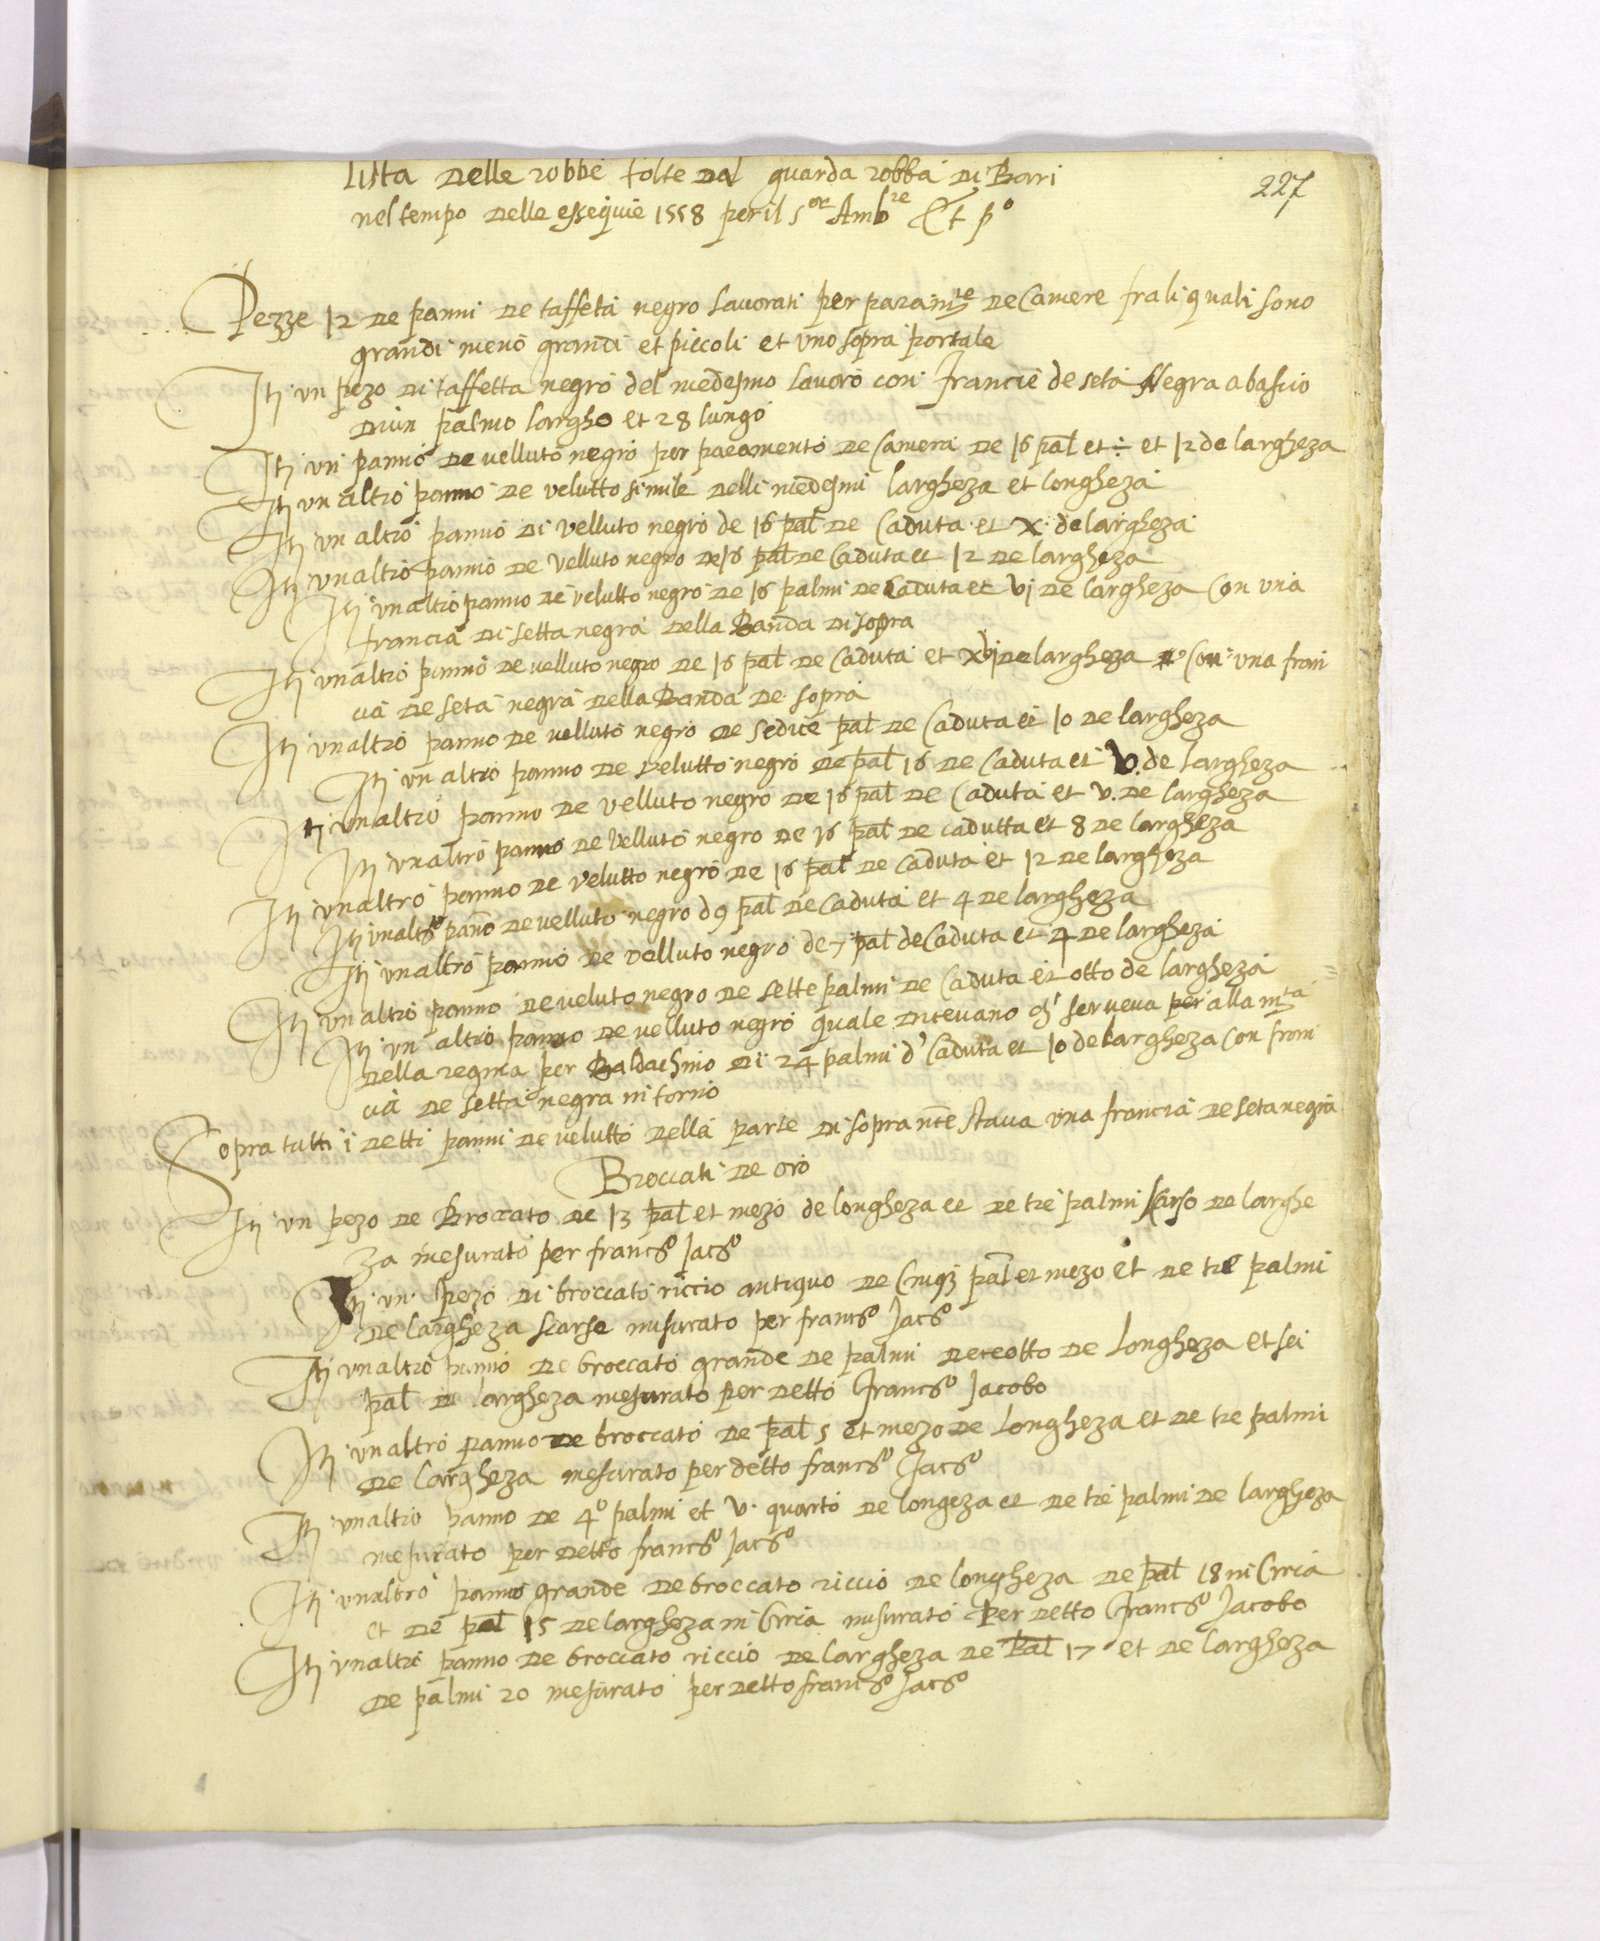 Lista delle robbe tolte dal guarda robba di Bari
227
nel tempo delle essequie 1558 per il s.or Amb.re et p.o
Pezze 12 de panni de taffeta negro lavorati per param.te de Camere fra li quali sono
grandi meno grandi et piccoli et uno sopra portale
Itj un pezo di taffetta negro del medesmo lavoro con francie de seta Negra abascio
d'un palmo largho et 28 lungo
Itj un panno de velluto negro per paramento de Camera de 16 pal et ÷ et 12 de largheza
Itj un altro panno de velutto simile delli medesmi largheza et longheza
Itj un altro panno di velluto negro de 16 pal de Caduta et X. de largheza
Itj un altro panno de velluto negro de 16 pal de Caduta et 12 de largheza
Itj un altro panno de velutto negro de 16 palmi de Caduta et vj de largheza Con una
francia di setta negra della Banda di sopra
Itj un altro panno de velluto negro de 16 pal de Caduta et xvj de largheza Con una fran
cia de seta negra della Banda de sopra
Itj un altro panno de velluto negro de sedice pal de Caduta et 10 de largheza
Itj un altro panno de velutto negro de pal 16 de Caduta et V. de largheza
Itj un altro panno de velluto negro de 16 pal de Caduta et v. de largheza
Itj un altro panno de velluto negro de 16 pal de cadutta et 8 de largheza
Itj un altro panno de velutto negro de 16 pal de Caduta et 12 de largheza
Itj un altro pano de velluto negro d 9 pal de Caduta et 4 de largheza
Itj un altro panno de velluto negro de 7 pal de Caduta et 4 de largheza
Itj un altro panno de veluto negro de sette palmi de Caduta et otto de largheza
Itj un altro panno de velluto negro quale dicevano ch' serveva per alla m.ta
della regina per Baldachino di 24 palmi d' Caduta et 10 de largheza con fran
cia de setta negra intorno
Sopra tutti i detti panni de velutto della parte di sopra nce stava una francia de seta negra
Broccati de oro
Itj un pezo de Broccato de 13 pal et mezo de longheza et de tre palmi scarso de larghe
za mesurato per franc.o Jac.o
Itj un pezo di broccato riccio antiquo de Cinq3 pal et mezo et de tre palmi
de largheza scarse misurato per franc.o Jac.o
Itj un altro panno de broccato grande de palmi deceotto de Longheza et sei
pal de largheza mesurato per detto Franc.o Jacobo
Itj un altro panno de broccato de pal 5 et mezo de Longheza et de tre palmi
de largheza mesurato per detto franc.o Jac.o
Itj un altro panno de 4.o palmi et v. quarto de longeza et de tre palmi de largheza
mesurato per detto franc.o Jac.o
Itj un altro panno grande de broccato riccio de longheza de pal 18 in Circa
et de pal 15 de largheza in Circa misurato per detto Franc.o Jacobo
Itj un altro panno de broccato riccio de largheza de pal 17 et de largheza
de palmi 20 mesurato per detto franc.o Jac.o